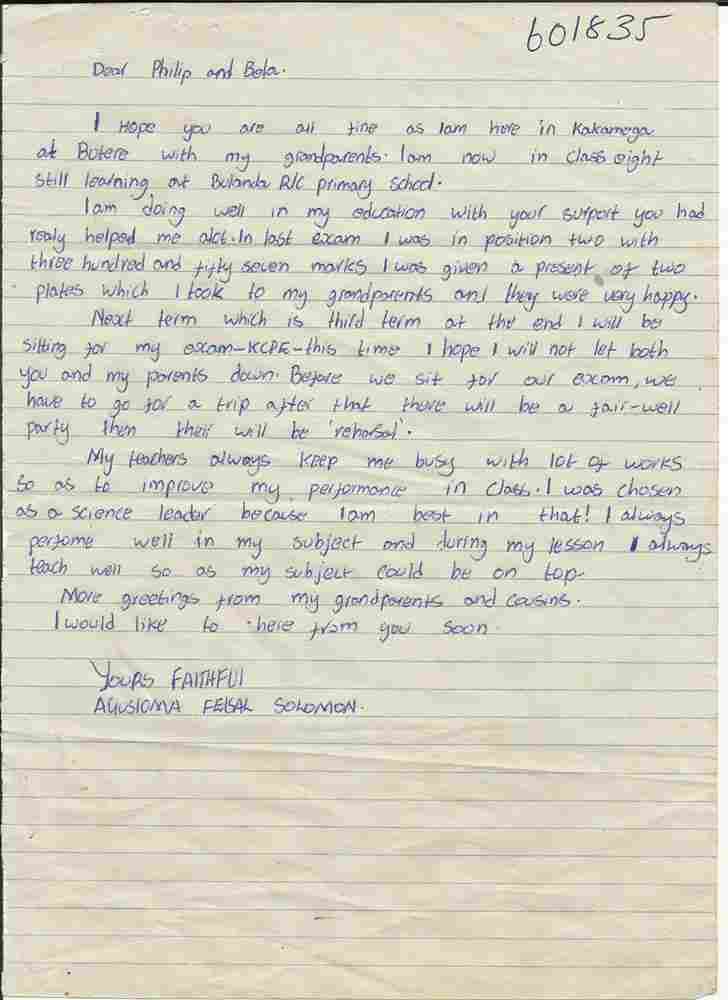 601835
Dear Philip and Bela.
I Hope you are all fine as Iam here in Kakamega
at Butere with my grandparents. Iam now in class eight
Still learning at Bulanda R/C primary school.
Iam doing well in my education with your surport you had
realy helped me alot. In last exam I was in position two with
three hundred and fifty seven marks I was given a present of two
plates which I took to my grandparents and they were very happy.
Next term which is third term at the end I will be
sitting for my exam-KCPE-this time I hope I will not let both
you and my parents down. Before we sit for our excam, we
have to go for a trip after that there will be a fair-well
party then their will be 'rehersal'.
My teachers always keep me busy with lot of works
so as to improve my performance in class. I was chosen
as a science leader because Iam best in that! I always
perfome well in my subject and during my lesson I always
teach well so as my subject could be on top.
More greetings from my grandparents and cousins.
I would like to here from you soon.
YOURS FAITHFUl
FEISAL SOLOMON.